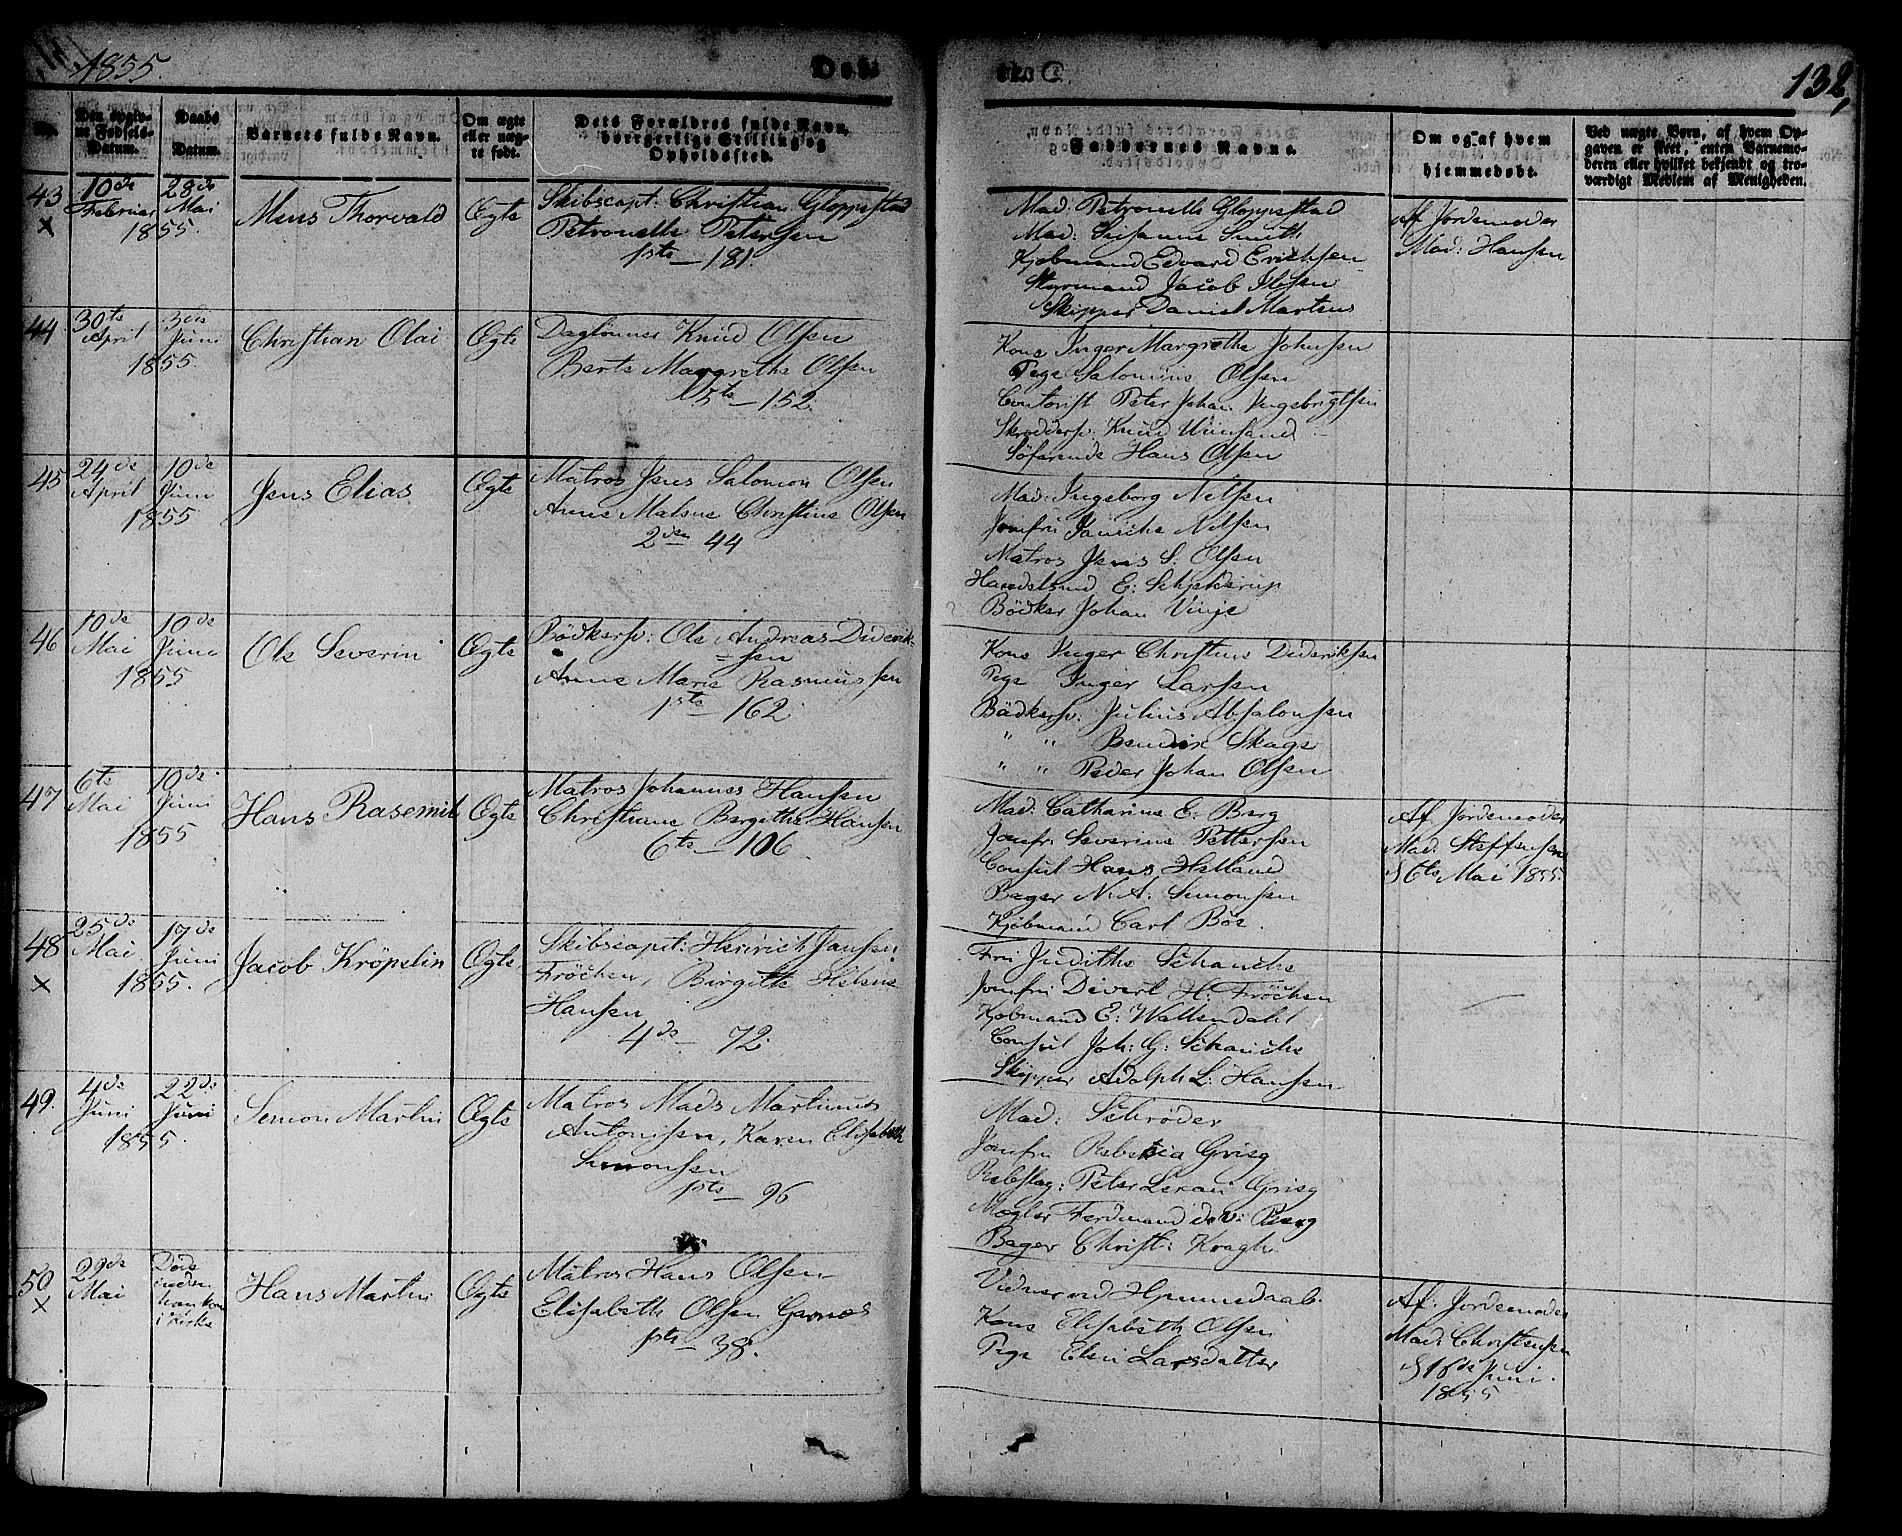 1855.
Døbte
132,
No.
Den opgivne Fødsels-Datum.
Daabs Datum.
Barnets fulde Navn.
Om ægte eller uægte født.
Dets Forældres fulde Navn, borgerlige Stilling og Opholdssted.
Faddernes Navne.
Om og af hvem hjemmedøbt.
Ved uægte Børn, af hvem Opgaven er skeet, enten Barnemoderen eller hvilket bekjendt og troværdigt Medlem af Menigheden.
43
×
10de Februar
28de Mai
1855.
Mens Thorvald
Ægte
Skibscapt: Christian Gloppestad
Petronelle Petersen
1ste – 181.
Mad: Petronelle Gloppestad
Mad: Susanne Smith
Kjøbmand Edvard Erichsen
Styrmand Jacob Ibsen
Skipper Daniel Martens
Af Jordemoder
Mad: Hansen
44
30te April
3die Juni
1855.
Christian Olai
Ægte
Daglønner Knud Olsen
Berte Margrethe Olsen
5te – 152.
Kone Inger Margrethe Johnsen
Pige Salomine Olsen
Contorist Peter Johan Ingebrigtsen
Skreddersv. Knud
Søfarende Hans Olsen
45
24de April
10de Juni
1855
Jens Elias
Ægte
Matros Jens Salomon Olsen
Anne Malene Christine Olsen
2den 44
Mad: Ingeborg Nilsen
Jomfru Nilsen
Matros Jens S. Olsen
E: Schjelderup
Bödker Johan Vinje
46
10de Mai
10de Juni
1855
Ole Severin
Ægte
Bödkersv: Ole Andreas Diderik-
=sen
Anne Marie Rasmussen
1ste – 162.
Kone Inger Christine Dideriksen
Pige Inger Larsen
Bödkersv: Julius Absalonsen
" " Bendix Skage
" " Peder Johan Olsen
47
6te Mai
10de Juni
1855
Hans Rasemil
Ægte
Matros Johannes Hansen
Christiane Bergithe Hansen
6te – 106.
Mad: Catharine E: Berg
Jomfr: Severine Pettersen
Consul Hans Helland
Bager N. A. Simonsen
Kjøbmand Carl Böe.
Af Jordemoder
Mad: Steffensen
d 6te Mai 1855.
48
×
25de Mai
17de Juni
1855.
Jacob Kröpelin
Ægte
Skibscapt: Heinrich Jansen
Fröchen, Birgitte Helene
Hansen
4de – 72.
Fru Judithe Schanche
Jomfru Divert H: Fröchen
Kjøbmand E: Wallendahl
Consul Joh: G: Schanche
Skipper Adolph L: Hansen
49.
4de Juni
22de Juni
1855.
Simon Martin
Ægte
Matros Mads Martinus
Antonisen, Karen Elisabeth
Simonsen
1ste – 96
Mad: Schrøder
Jomfru Rebekka Grieg
Rebslag: Peter Lexau Grieg
Mægler Ferdinand d v: Berg
Bager Christ: Kragh.
50
×
29de Mai
Døde
inden
han kom
i Kirke
Hans Martin
Ægte
Matros Hans Olsen
Elisabeth Olsen Garnæs
1ste – 38.
Vidner ved Hjemmedaab.
Kone Elisabeth Olsen
Pige Elen Larsdatter
Af Jordemoder
Mad: Christensen
d 16de Juni.
1855